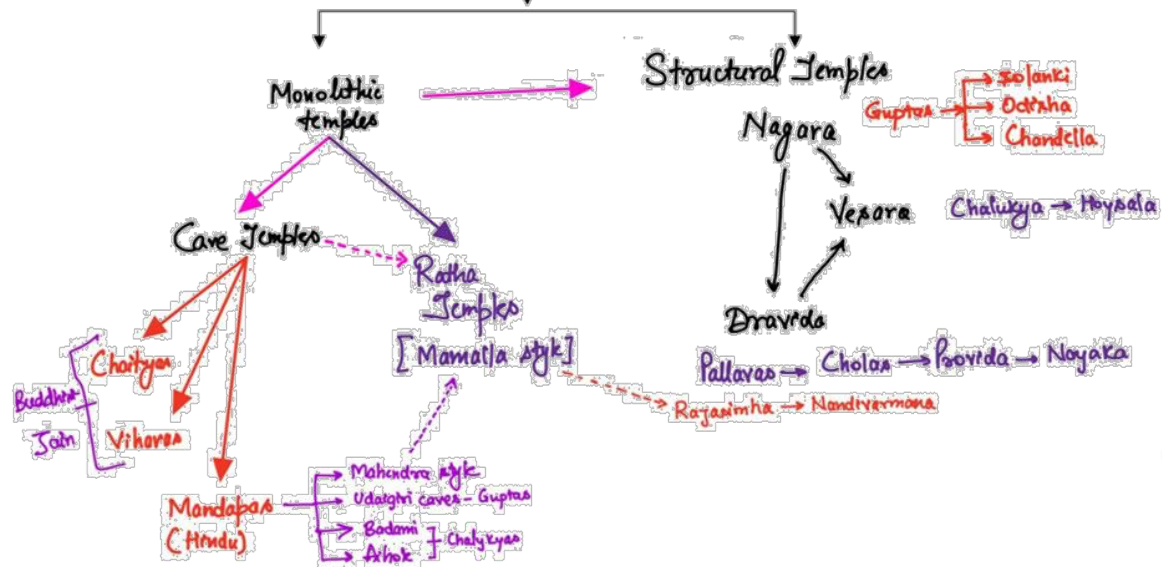 Monolithic
temples
Structural Temples
Guptas
Solanki
Odisha
Chandella
Nagara
Vesara
Chalukya → Hoysala
Dravida
Pallavas → Cholas → Provida → Nayaka
Rajasimha → Nandivarmana
Cave Temples
Ratha
Temples
[Mamalla style]
Chaityas
Buddhist
Jain
Viharas
Mandapas
(Hindu)
Mahendra style
Udaigiri caves - Guptas
Badami
Aihole
Chalykyas